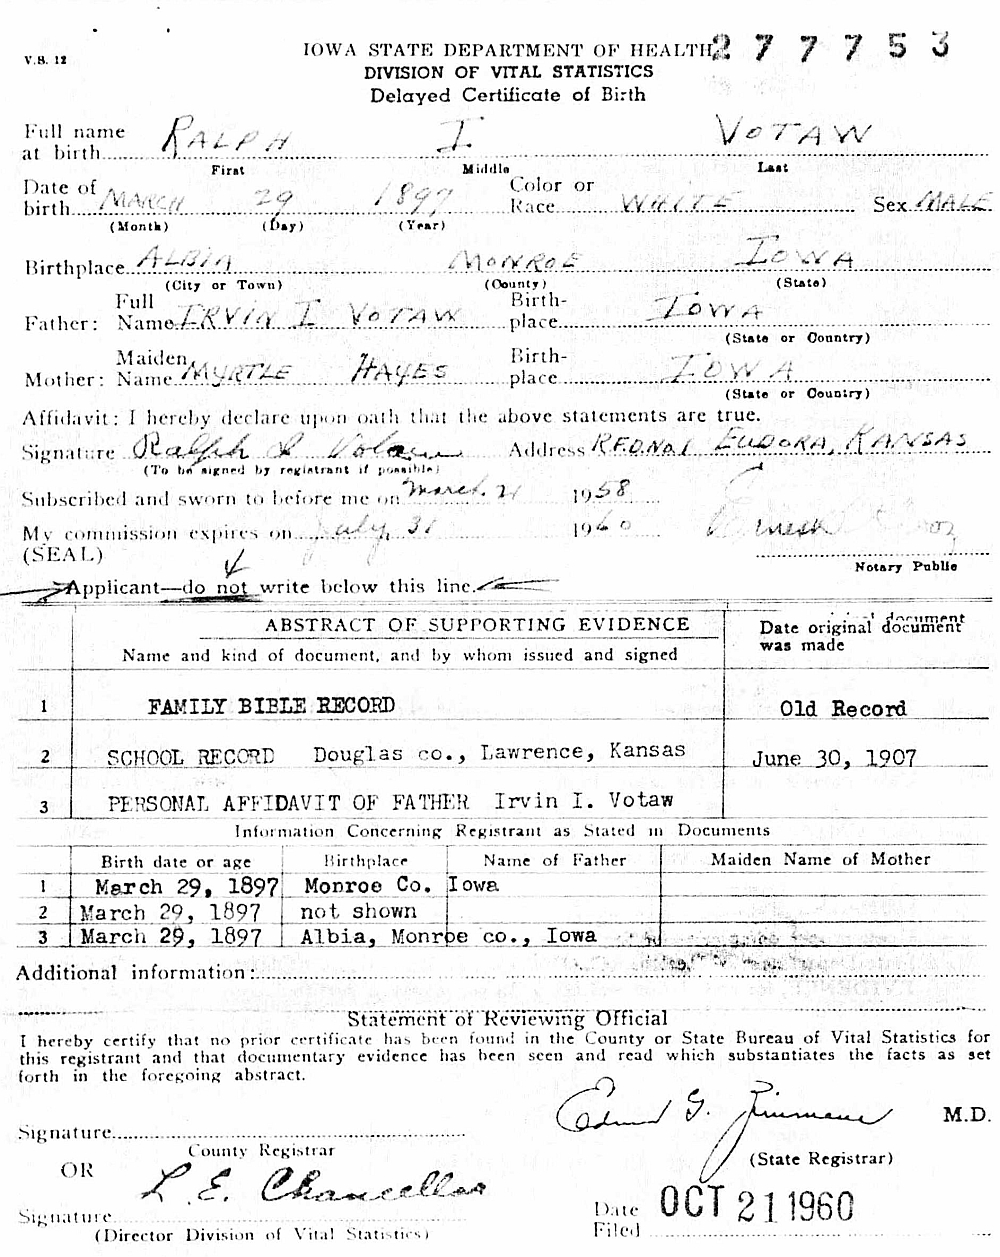 V.S. 12
IOWA STATE DEPARTMENT OF HEALTH 277753
DIVISION OF VITAL STATISTICS
Delayed Certificate of Birth
Full name at birth RALPH I VOTAW
First Middle Last
Date of birth MARCH 29 1897 Color or Race WHITE Sex MALE
(Month) (Day) (Year)
Birthplace ALBIA MONROE IOWA
(City or Town) (County) (State)
Father: Full Name IRVIN I VOTAW Birth-place IOWA
(State or Country)
Mother: Maiden Name MYRTLE HAYES Birth-place IOWA
(State or Country)
Affidavit: I hereby declare upon oath that the above statements are true.
Signature Ralph I Votaw Address RFD NO 1 EUDORA, KANSAS
(To be signed by registrant if possible)
Subscribed and sworn to before me on March 21 1958
My commission expires on July 31 1960
(SEAL)
Notary Public
Applicant—do not write below this line.
ABSTRACT OF SUPPORTING EVIDENCE
Name and kind of document, and by whom issued and signed
Date original document was made
1 FAMILY BIBLE RECORD Old Record
2 SCHOOL RECORD Douglas co., Lawrence, Kansas June 30, 1907
3 PERSONAL AFFIDAVIT OF FATHER Irvin I. Votaw
Information Concerning Registrant as Stated in Documents
Birth date or age Birthplace Name of Father Maiden Name of Mother
1 March 29, 1897 Monroe Co. Iowa
2 March 29, 1897 not shown
3 March 29, 1897 Albia, Monroe co., Iowa
Additional information:
Statement of Reviewing Official
I hereby certify that no prior certificate has been found in the County or State Bureau of Vital Statistics for
this registrant and that documentary evidence has been seen and read which substantiates the facts as set
forth in the foregoing abstract.
Signature
County Registrar
Edmund G. Zimmerer M.D.
(State Registrar)
OR
L. E. Chancellor
Signature
(Director Division of Vital Statistics)
Date Filed OCT 21 1960